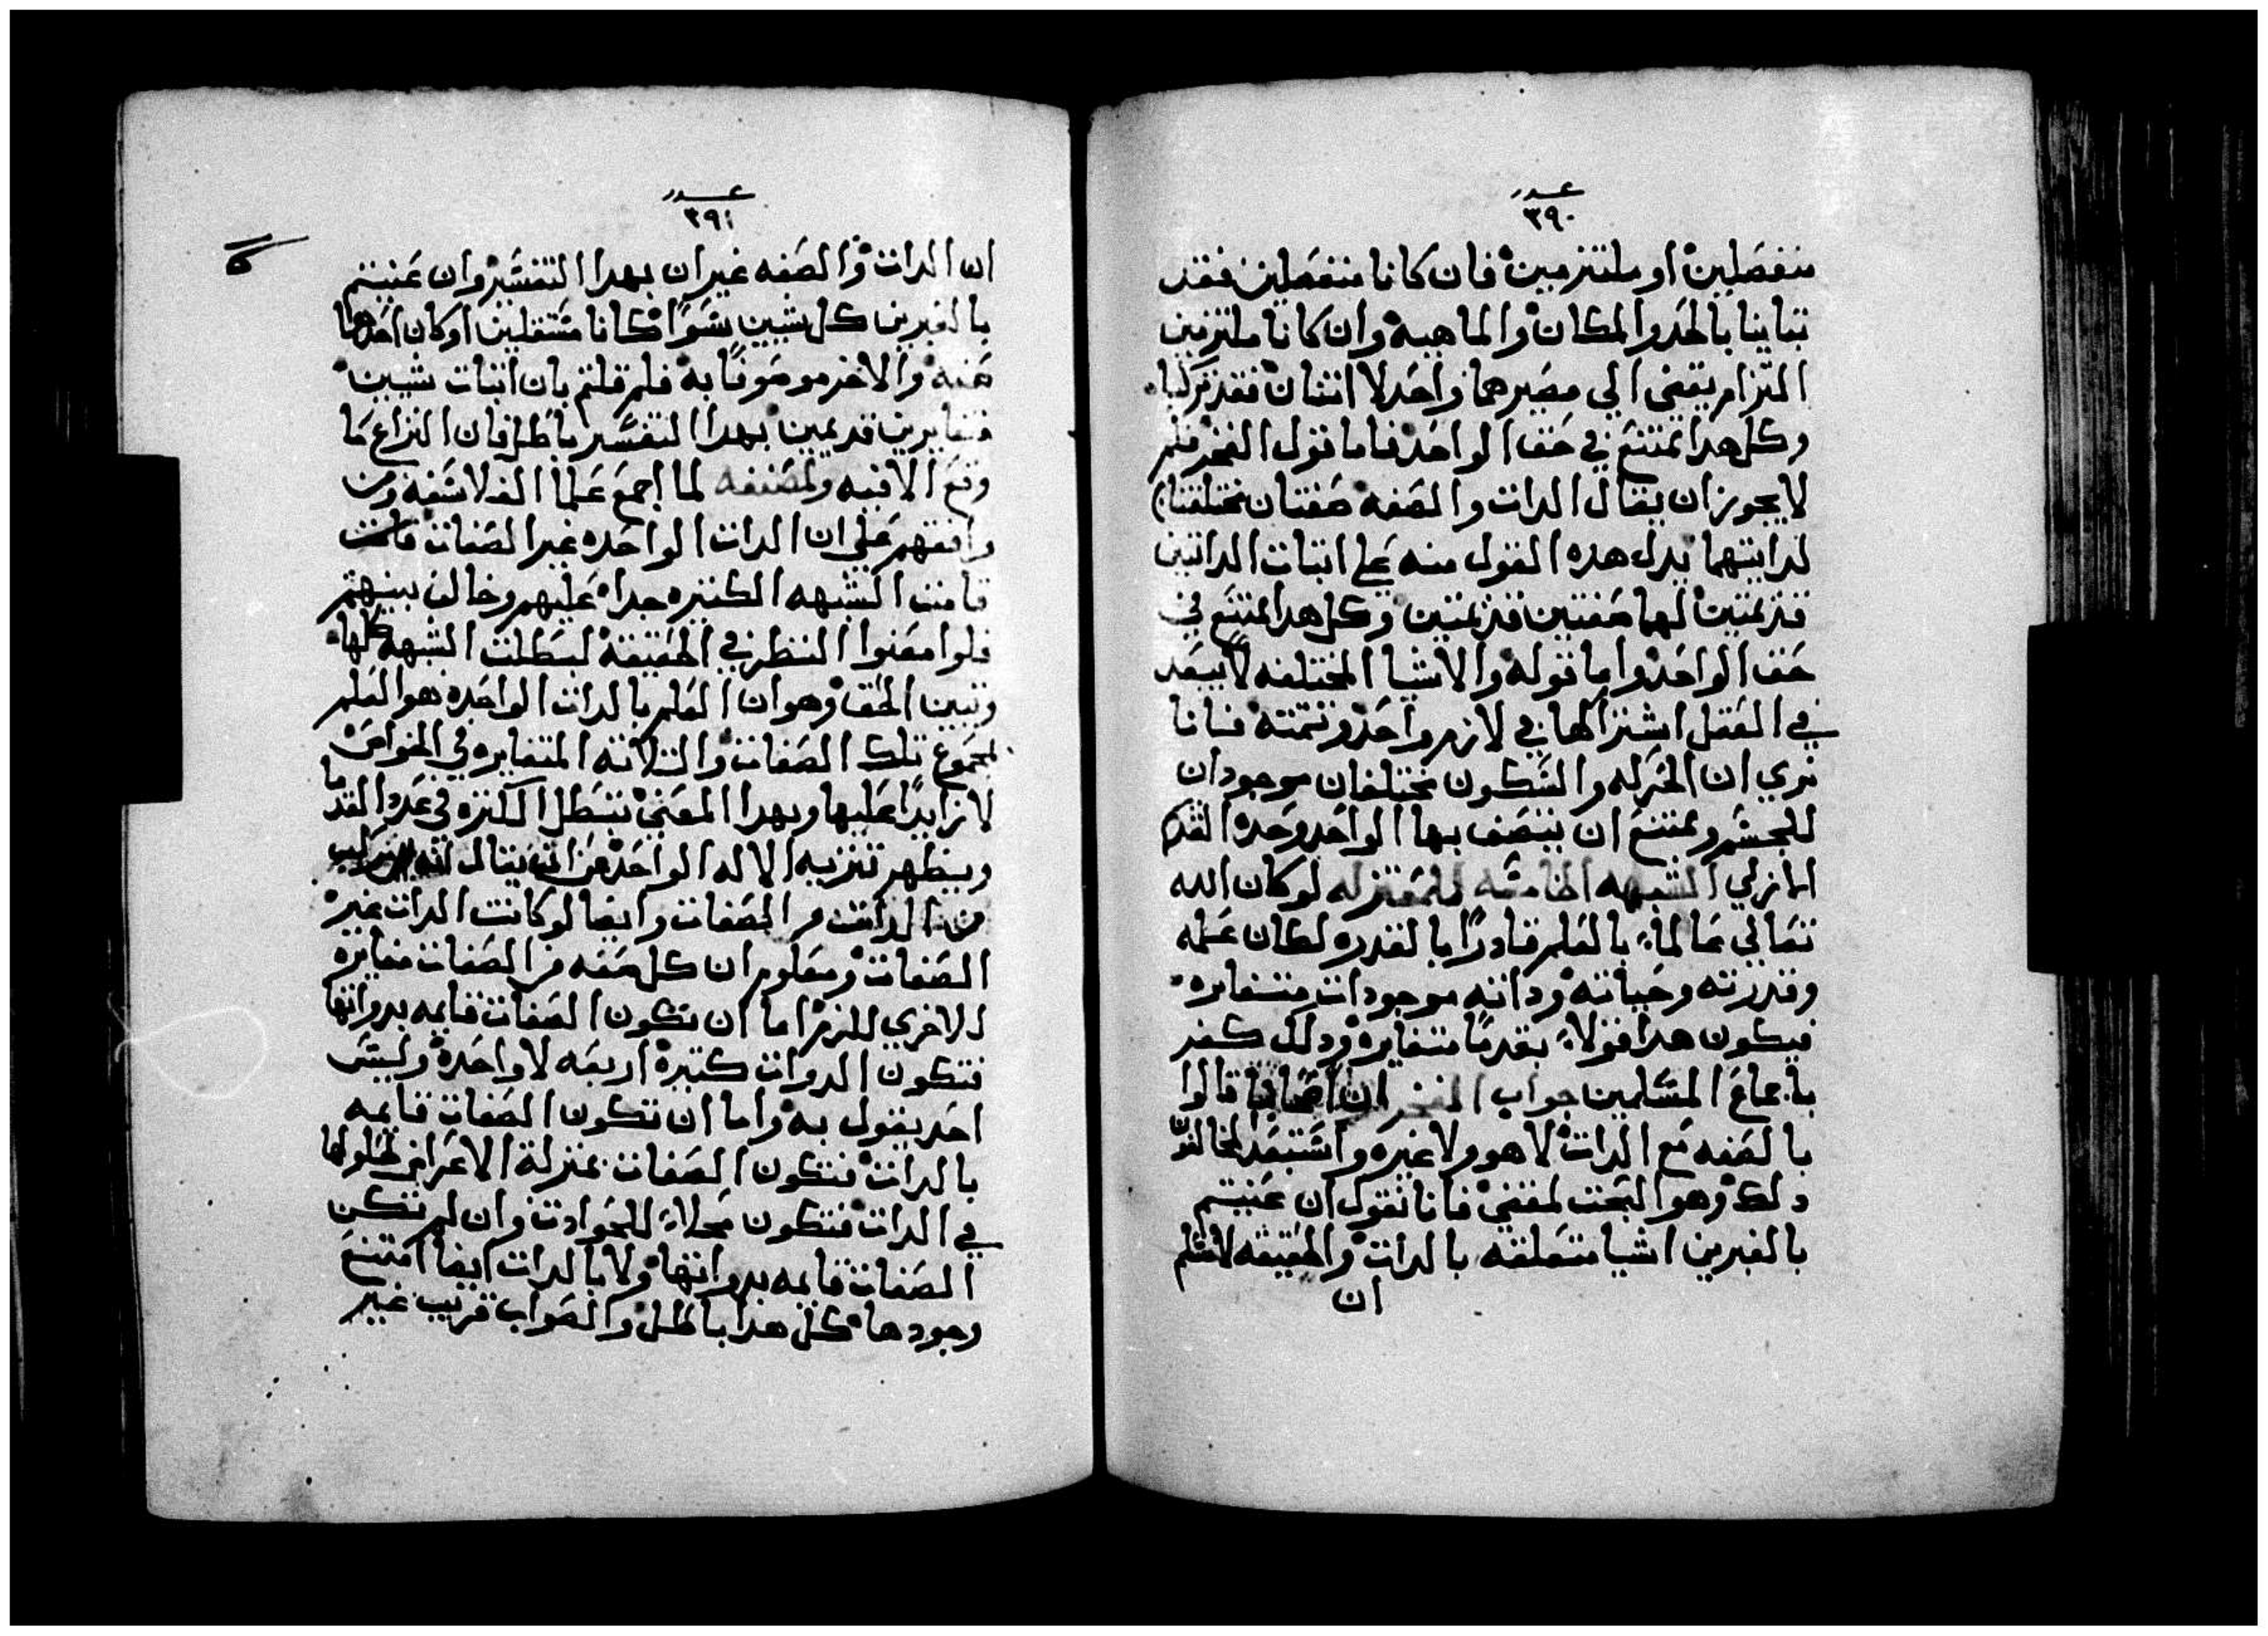 عدد
٣٩٠
منفصلين او ملتزمين فان كانا منفصلين فقد
تباينا بالحد والمكان والماهيه وان كانا ملتزمين
التزام يقضي الي مصيرهما واحد لا اثنان فقد تركبا
وكل هدا يمتنع في حق الواحد فاما قول الفخر فلم
لا يجوز ان يقال الدات والصفه صفتان مختلفتان
لداتيتهما يدل هده القول منه علي اتبات الداتين
قديمتين لهما صفتين قديمتين وكل هدا يمتنع في
حق الواحد واما قوله والاشيا المختلفه لا يبعد
في العقل اشتراكها في لازم واحد وتتمته فانا
نري ان الحركه والسكون مختلفان موجودان
للجسم ويمتنع ان يتصف بها الواحد وحده القديم
الازلي الشبهه الخامسه للمعتزله لو كان الله
تعالي عالماً بالعلم قادراً بالقدره لكان علمه
وقدرته وحياته وداته موجودات متغايره
فيكون هدا قولاً بقدما متغايره ودلك كفر
باجماع المسلمين جواب الفخر ان اصحابنا قالوا
بالصفه مع الدات لا هو ولا غيره واستبعد المخالفون
دلك وهو البحت لمعني فانا نقول ان عنيتم
بالغيرين اشيا متعلقه بالدات والحقيقه لا نسلم
ان
عدد
٣٩١
ان الدات والصفه غيران بهدا التفسير وان عنيتم
بالغيرين كل شيين سوا كانا مستقلين او كان احدهما
صفه والاخر موصوفاً به فلم قلتم بان اتبات شيين
متغايرين قديمين بهدا التفسير باطل فان النزاع ما
وقع الا فيه ولمصنفه لما اجمع علما الفلاسفه ومن
وافقهم علي ان الدات الواحده غير الصفات
قامت الشبهه الكتيره جداً عليهم وخالف بينهم
فلو امعنوا النظر في الحقيقه لبطلت الشبهه كلها
وتبين الحق وهو ان العلم بالدات الواحده هو العلم
بمجموع تلك الصفات والتلاته المتغايره في الخواص
لا زايداً عليها وبهدا المعني تبطل الكتره في عدد القدما
ويظهر تنزيه الاله الواحد عن ان يقال انه تركب
من الدات و الصفات وايضا لو كانت الدات غير
الصفات ومعلوم ان كل صفه من الصفات مغايره
للاخري للزم اما ان تكون الصفات قايمه بدواتها
فتكون الدوات كتيره اربعه لا واحده وليس
احد يقول به واما ان تكون الصفات قايمه
بالدات فتكون الصفات بمنزلة الاعراض لحلولها
في الدات فتكون محلاً للحوادت وان لم تكن
الصفات قايمه بدواتها ولا بالدات ايضا امتنع
وجودها كل هدا باطل والصواب قريب غير